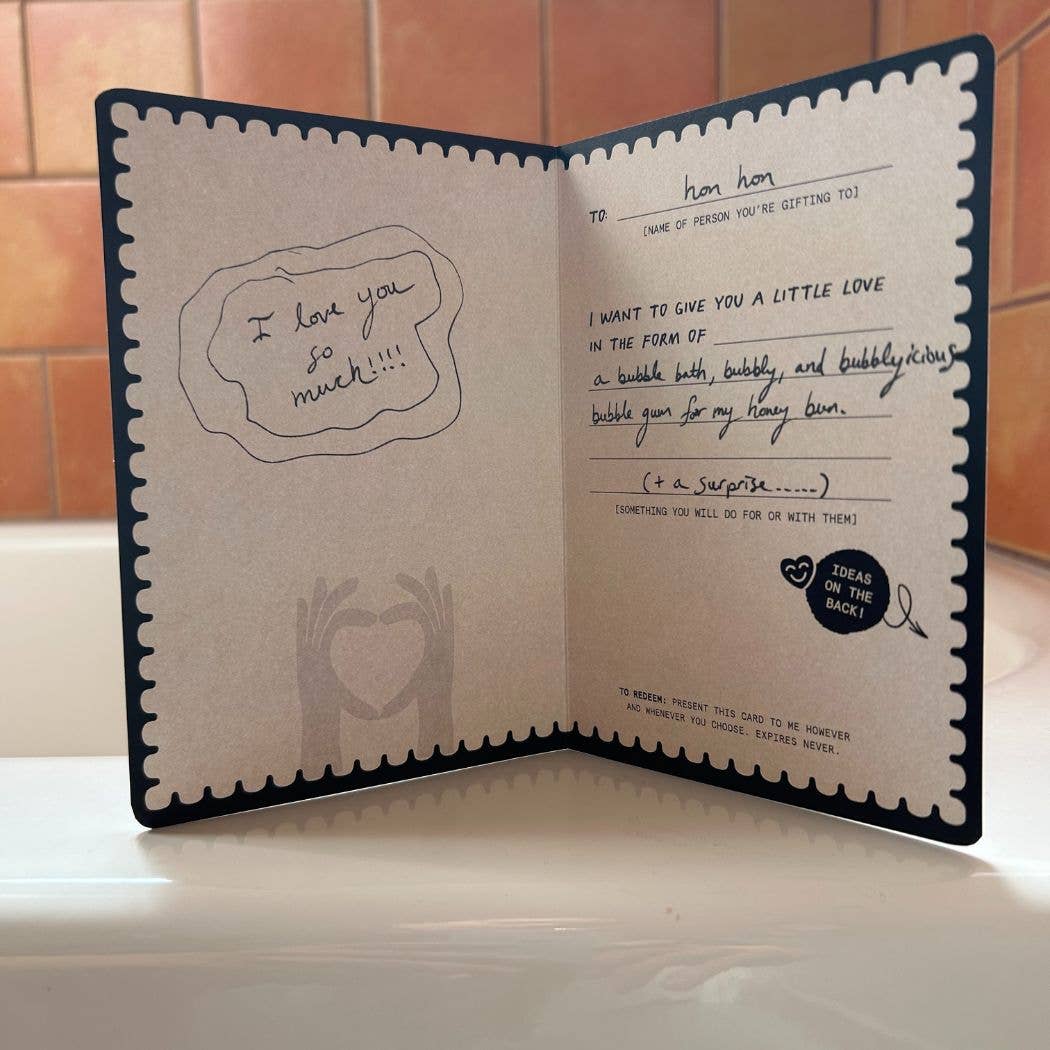 I love you
so
much!!!!
TO: hon hon
[NAME OF PERSON YOU'RE GIFTING TO]
I WANT TO GIVE YOU A LITTLE LOVE
IN THE FORM OF
a bubble bath, bubbly, and bubblyicious
bubble gum for my honey bun.
(+ a surprise.....)
[SOMETHING YOU WILL DO FOR OR WITH THEM]
IDEAS
ON THE
BACK!
TO REDEEM: PRESENT THIS CARD TO ME HOWEVER
AND WHENEVER YOU CHOOSE. EXPIRES NEVER.